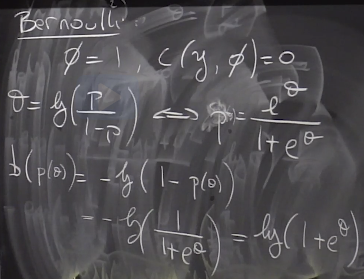 Bernoulli:
ϕ = 1 , c(y, ϕ) = 0
θ = lg(p/(1-p)) ⟺ p = e^θ/(1+e^θ)
b(p(θ)) = -lg(1-p(θ))
= -lg(1/(1+e^θ)) = lg(1+e^θ)